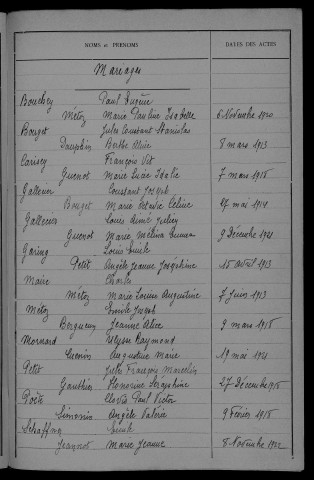 NOMS et PRÉNOMS DATES DES ACTES
Mariages
Bouchey Paul Eugène
Métoz Marie Pauline Isabelle 6 Novembre 1920
Borget Jules Constant Stanislas
Dauphin Berthe Alice 8 mars 1913
Carisey François Vit
Guenot Marie Lucie Izalie 7 mars 1915
Galleur Constant Joseph
Bouget Marie Octavie Céline 27 mai 1914
Galleur Louis Aimé Julien
Guenot Marie Mélina Emma 9 Décembre 1921
Garing Louis Emile
Petit Angèle Jeanne Joséphine 15 avril 1913
Maire Charles
Métoz Marie Louise Augustine 7 Juin 1913
Métoz Emile Joseph
Bergueuy Jeanne Alice 9 mars 1918
Mornard Ulysse Raymond
Augustine Marie 19 mai 1921
Petit Jules François Marcelin
Gauthier Honorine Séraphine 27 Décembre 1915
Poête Clovis Paul Victor
Simonin Angèle Valérie 9 Février 1918
Emile
Jeannot Marie Jeanne 8 Novembre 1922